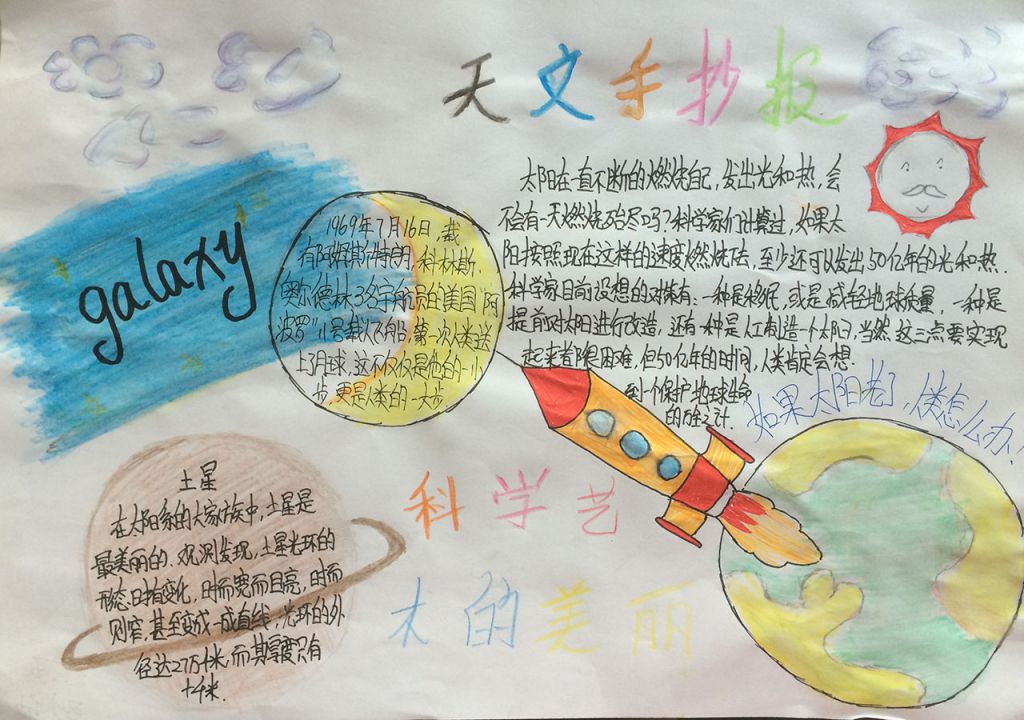 天文手抄报
galaxy
1969年7月16日,载
有阿姆斯特朗,科林斯.
奥尔德林3名宇航员的美国"阿
波罗"11号载人飞船,第一次人类送
上月球,这不仅仅是他的一小
步,更是人类的一大步
太阳在一直不断的燃烧自己,发出光和热,会
不会有一天燃烧殆尽吗?科学家们计算过,如果太
阳按照现在这样的速度燃烧下去,至少还可以发出50亿年的光和热.
科学家目前设想的对策有:一种是移民,或是减轻地球质量,一种是
提前对太阳进行改造,还有一种是人工制造一个太阳,当然这三点要实现
起来都很困难,但50亿年的时间,人类肯定会想.
到一个保护地球生命
的万全之计.
如果太阳老了,人类怎么办!
土星
在太阳系的大家族中,土星是
最美丽的.观测发现,土星光环的
形态日有变化,时而宽而且亮,时而
则窄,甚至变成一成直线,光环的外
径达27万千米,而其厚度只有
十千米.
科学艺
术的美丽